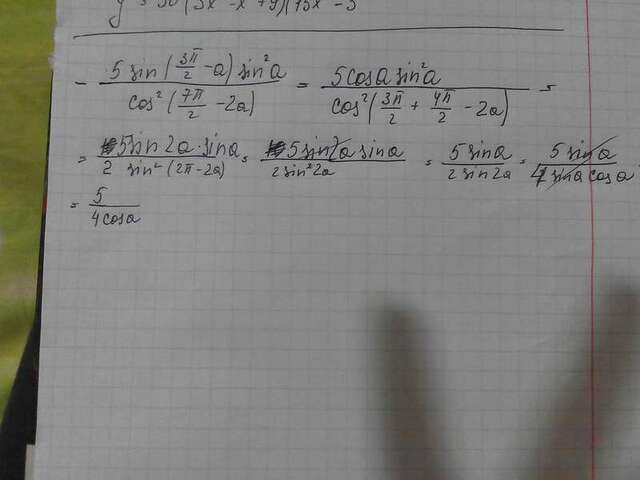 y = 30(3x² - x + 9)(15x - 3
- 5 sin(3π/2 - a) sin²a / cos²(7π/2 - 2a) = 5 cosa sin²a / cos²(3π/2 + 4π/2 - 2a) =
= 5 sin 2a · sin a / 2 sin²(2π - 2a) = 5 sin 2a sin a / 2 sin² 2a = 5 sin a / 2 sin 2a = 5 sin a / 4 sin a cos a
= 5 / 4 cos a